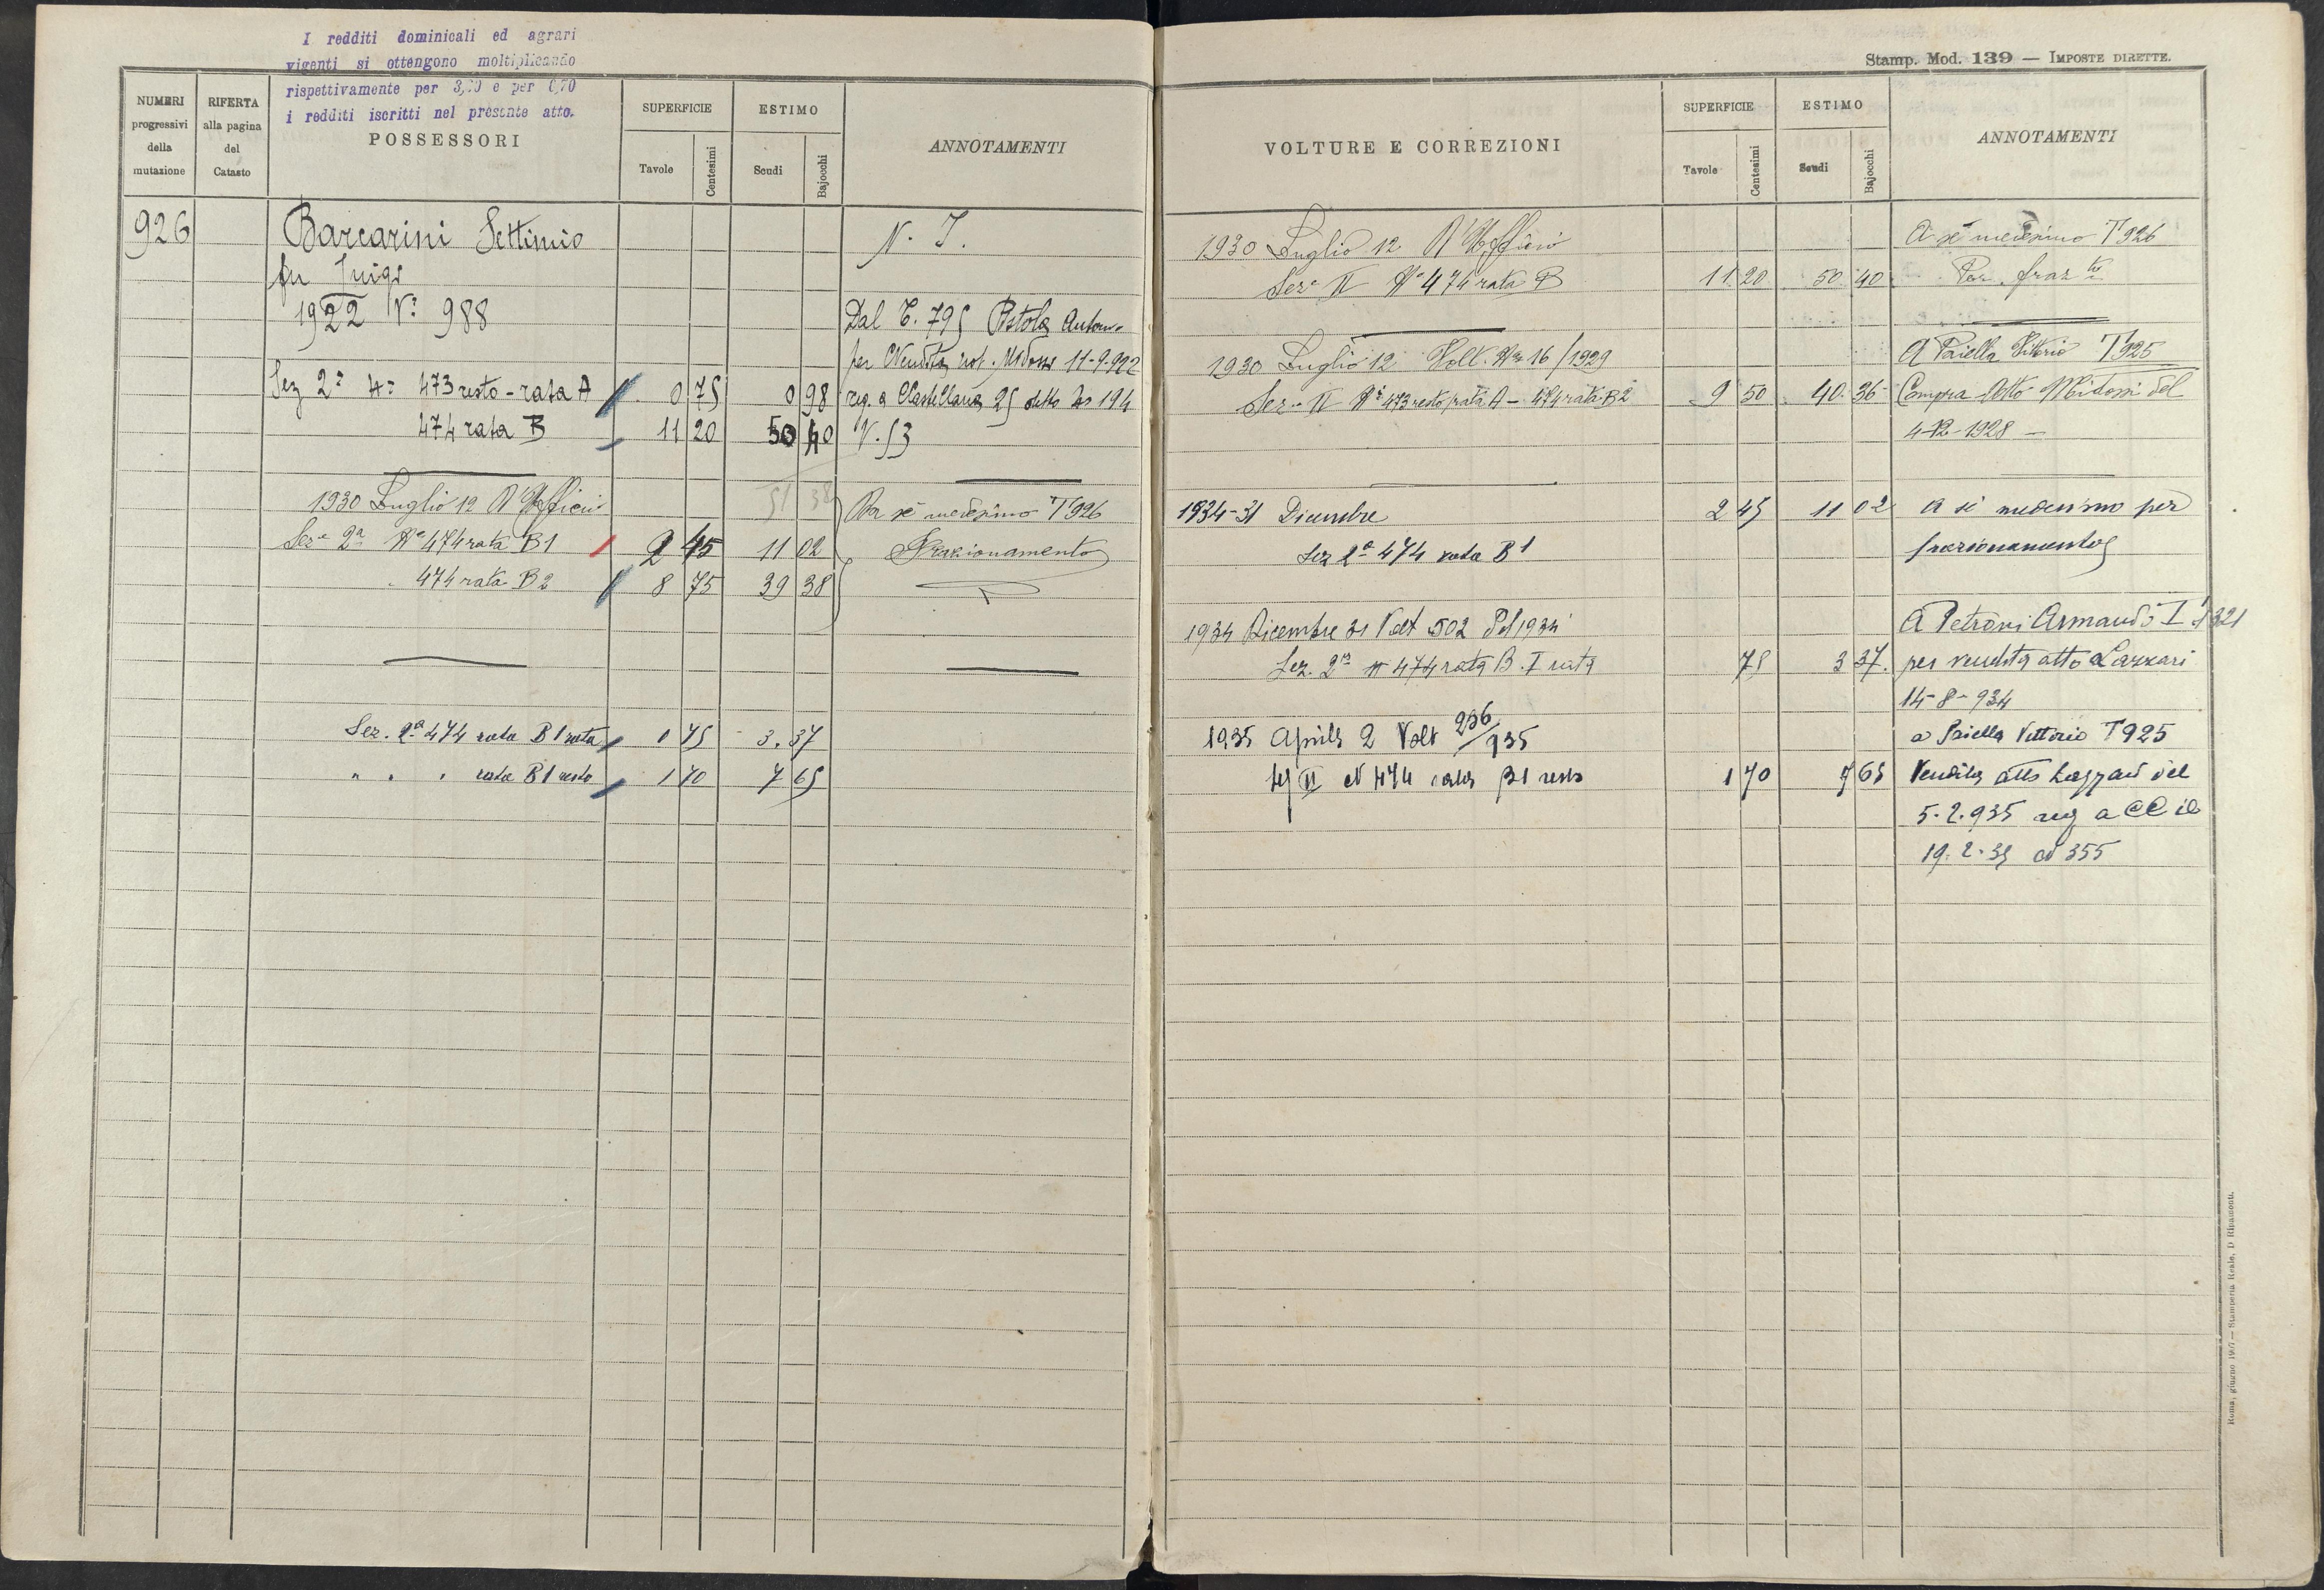 I redditi dominicali ed agrari
vigenti si ottengono moltiplicando
rispettivamente per 3,20 e per 0,70
i redditi iscritti nel presente atto.
NUMERI progressivi della mutazione
RIFERTA alla pagina del Catasto
POSSESSORI
SUPERFICIE
Tavole Centesimi
ESTIMO
Scudi Bajocchi
ANNOTAMENTI
926 Barcarini Settimio N. I.
fu Luigi
1922 N: 988 Dal T. 795 Pistola Anton.
per Vendita not. Midossi 11-9-922
Sez 2ª 473 resto - rata A 0 75 0 98 reg. a Castellana 25 detto No 194
474 rata B 11 20 50 40 V. 53
51 38
1930 Luglio 12 D'Ufficio Da sè medesimo T 926
Sez.e 2ª No 474 rata B1 2 45 11 02 Frazionamento
474 rata B2 8 75 39 38
Sez. 2ª 474 rata B1 rata 0 75 3.37
" " " rata B1 resto 1 70 7 65
Stamp. Mod. 139 — IMPOSTE DIRETTE.
VOLTURE E CORREZIONI
SUPERFICIE
Tavole Centesimi
ESTIMO
Scudi Bajocchi
ANNOTAMENTI
1930 Luglio 12 D'Ufficio A sè medesimo T 926
Sez.e II No 474 rata B 11 20 50 40 Per fraz.to
1930 Luglio 12 Volt. No 16/1929 A Paiella Vittorio T 925
Sez.e II No 473 resto/rata A - 474 rata B2 9 50 40 36 Compra Atto Midossi del
4-12-1928 —
1934-31 Dicembre 2 45 11 02 A sè medesimo per
Sez 2ª 474 rata B1 frazionamento
1934 Dicembre 31 Volt 502 del 1934 A Petroni Armando T 1321
Sez. 2ª N 474 rata B.I rata 75 3 37 per vendita atto Lazzari
14-8-934
1935 Aprile 2 Volt 256/935 a Paiella Vittorio T 925
Sez II N 474 rata B1 resto 1 70 7 65 Vendita atto Lazzari del
5.2.935 reg a CC il
19.2.35 N 355
Roma, giugno 1907 — Stamperia Reale, D Ripamonti.